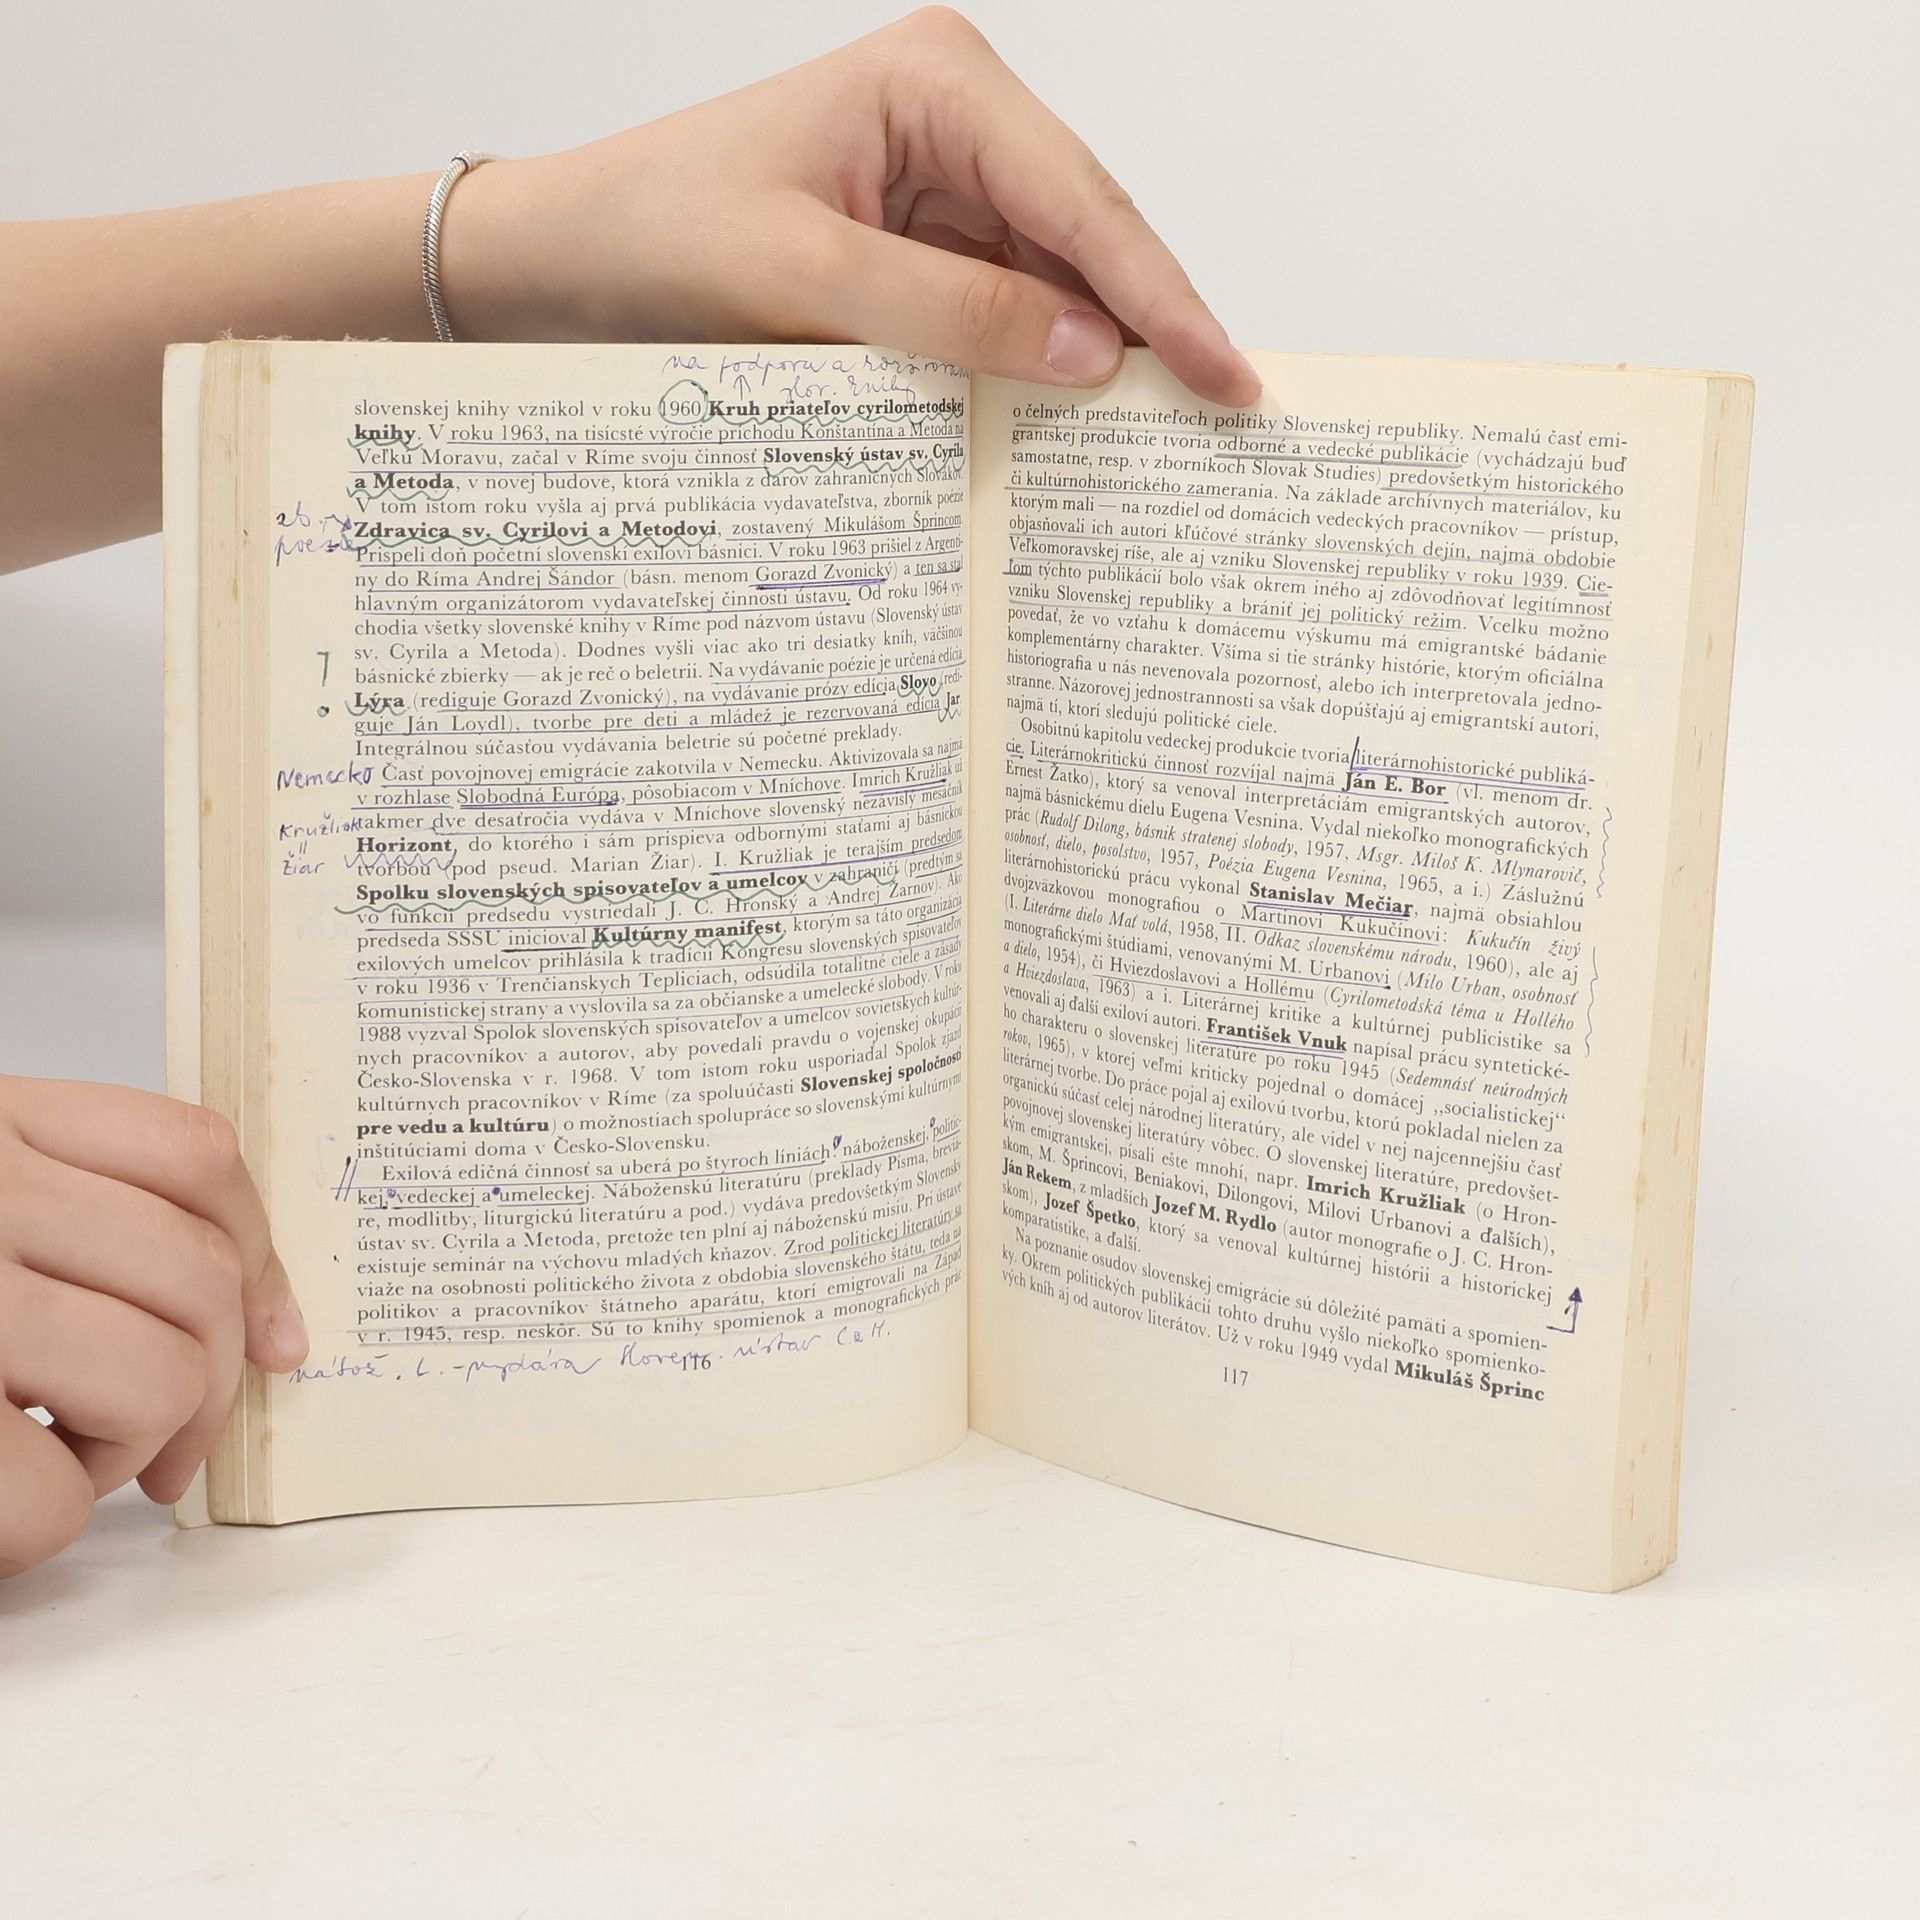 na podporu a rozširovan
slov. knihy
slovenskej knihy vznikol v roku 1960 Kruh priateľov cyrilometodskej
knihy. V roku 1963, na tisícsté výročie príchodu Konštantína a Metoda na
Veľkú Moravu, začal v Ríme svoju činnosť Slovenský ústav sv. Cyrila
a Metoda, v novej budove, ktorá vznikla z darov zahraničných Slovákov.
V tom istom roku vyšla aj prvá publikácia vydavateľstva, zborník poézie
Zdravica sv. Cyrilovi a Metodovi, zostavený Mikulášom Šprincom.
poezie
Prispeli doň početní slovenskí exiloví básnici. V roku 1963 prišiel z Argentí-
ny do Ríma Andrej Šándor (básn. menom Gorazd Zvonický) a ten sa stal
hlavným organizátorom vydavateľskej činnosti ústavu. Od roku 1964 vy-
chodia všetky slovenské knihy v Ríme pod názvom ústavu (Slovenský ústav
sv. Cyrila a Metoda). Dodnes vyšli viac ako tri desiatky kníh, väčšinou
básnické zbierky — ak je reč o beletrii. Na vydávanie poézie je určená edícia
Lýra (rediguje Gorazd Zvonický), na vydávanie prózy edícia Slovo (redi-
guje Ján Loydl), tvorbe pre deti a mládež je rezervovaná edícia Jar.
Integrálnou súčasťou vydávania beletrie sú početné preklady.
Nemecko
Časť povojnovej emigrácie zakotvila v Nemecku. Aktivizovala sa najmä
v rozhlase Slobodná Európa, pôsobiacom v Mníchove. Imrich Kružliak už
takmer dve desaťročia vydáva v Mníchove slovenský nezávislý mesačník
Kružliak
=
Žiar
Horizont, do ktorého i sám prispieva odbornými staťami aj básnickou
tvorbou (pod pseud. Marian Žiar). I. Kružliak je terajším predsedom
Spolku slovenských spisovateľov a umelcov v zahraničí (predtým sa
vo funkcii predsedu vystriedali J. C. Hronský a Andrej Žarnov). Ako
predseda SSSU inicioval Kultúrny manifest, ktorým sa táto organizácia
exilových umelcov prihlásila k tradícii Kongresu slovenských spisovateľov
v roku 1936 v Trenčianskych Tepliciach, odsúdila totalitné ciele a zásady
komunistickej strany a vyslovila sa za občianske a umelecké slobody. V roku
1988 vyzval Spolok slovenských spisovateľov a umelcov sovietskych kultúr-
nych pracovníkov a autorov, aby povedali pravdu o vojenskej okupácii
Česko-Slovenska v r. 1968. V tom istom roku usporiadal Spolok zjazd
kultúrnych pracovníkov v Ríme (za spoluúčasti Slovenskej spoločnosti
pre vedu a kultúru) o možnostiach spolupráce so slovenskými kultúrnymi
inštitúciami doma v Česko-Slovensku.
Exilová edičná činnosť sa uberá po štyroch líniách: náboženskej, politic-
kej, vedeckej a umeleckej. Náboženskú literatúru (preklady Písma, breviá-
re, modlitby, liturgickú literatúru a pod.) vydáva predovšetkým Slovenský
ústav sv. Cyrila a Metoda, pretože ten plní aj náboženskú misiu. Pri ústave
existuje seminár na výchovu mladých kňazov. Zrod politickej literatúry sa
viaže na osobnosti politického života z obdobia slovenského štátu, teda na
politikov a pracovníkov štátneho aparátu, ktorí emigrovali na Západ
v r. 1945, resp. neskôr. Sú to knihy spomienok a monografických prác
nábož. l. - vydáva Slovens. ústav C a M.
116
o čelných predstaviteľoch politiky Slovenskej republiky. Nemalú časť emi-
grantskej produkcie tvoria odborné a vedecké publikácie (vychádzajú buď
samostatne, resp. v zborníkoch Slovak Studies) predovšetkým historického
či kultúrnohistorického zamerania. Na základe archívnych materiálov, ku
ktorým mali — na rozdiel od domácich vedeckých pracovníkov — prístup,
objasňovali ich autori kľúčové stránky slovenských dejín, najmä obdobie
Veľkomoravskej ríše, ale aj vzniku Slovenskej republiky v roku 1939. Cie-
ľom týchto publikácií bolo však okrem iného aj zdôvodňovať legitímnosť
vzniku Slovenskej republiky a brániť jej politický režim. Vcelku možno
povedať, že vo vzťahu k domácemu výskumu má emigrantské bádanie
komplementárny charakter. Všíma si tie stránky histórie, ktorým oficiálna
historiografia u nás nevenovala pozornosť, alebo ich interpretovala jedno-
stranne. Názorovej jednostrannosti sa však dopúšťajú aj emigrantskí autori,
najmä tí, ktorí sledujú politické ciele.
Osobitnú kapitolu vedeckej produkcie tvoria literárnohistorické publiká-
cie. Literárnokritickú činnosť rozvíjal najmä Ján E. Bor (vl. menom dr.
Ernest Žatko), ktorý sa venoval interpretáciám emigrantských autorov,
najmä básnickému dielu Eugena Vesnina. Vydal niekoľko monografických
prác (Rudolf Dilong, básnik stratenej slobody, 1957, Msgr. Miloš K. Mlynarovič,
osobnosť, dielo, posolstvo, 1957, Poézia Eugena Vesnina, 1965, a i.) Záslužnú
literárnohistorickú prácu vykonal Stanislav Mečiar, najmä obsiahlou
dvojzväzkovou monografiou o Martinovi Kukučínovi: Kukučín živý
(I. Literárne dielo Mať volá, 1958, II. Odkaz slovenskému národu, 1960), ale aj
monografickými štúdiami, venovanými M. Urbanovi (Milo Urban, osobnosť
a dielo, 1954), či Hviezdoslavovi a Hollému (Cyrilometodská téma u Hollého
a Hviezdoslava, 1963) a i. Literárnej kritike a kultúrnej publicistike sa
venovali aj ďalší exiloví autori. František Vnuk napísal prácu syntetické-
ho charakteru o slovenskej literatúre po roku 1945 (Sedemnásť neúrodných
rokov, 1965), v ktorej veľmi kriticky pojednal o domácej „socialistickej“
literárnej tvorbe. Do práce pojal aj exilovú tvorbu, ktorú pokladal nielen za
organickú súčasť celej národnej literatúry, ale videl v nej najcennejšiu časť
povojnovej slovenskej literatúry vôbec. O slovenskej literatúre, predovšet-
kým emigrantskej, písali ešte mnohí, napr. Imrich Kružliak (o Hron-
skom, M. Šprincovi, Beniakovi, Dilongovi, Milovi Urbanovi a ďalších),
Ján Rekem, z mladších Jozef M. Rydlo (autor monografie o J. C. Hron-
skom), Jozef Špetko, ktorý sa venoval kultúrnej histórii a historickej
komparatistike, a ďalší.
Na poznanie osudov slovenskej emigrácie sú dôležité pamäti a spomien-
ky. Okrem politických publikácií tohto druhu vyšlo niekoľko spomienko-
vých kníh aj od autorov literátov. Už v roku 1949 vydal Mikuláš Šprinc
117